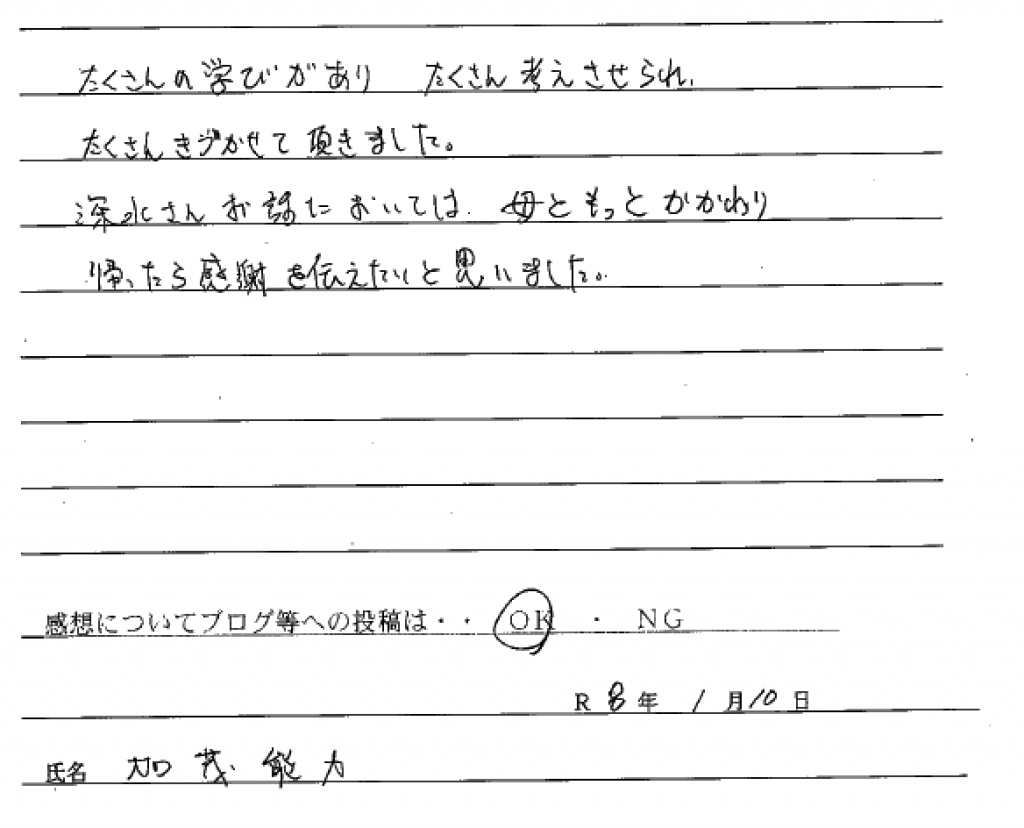 たくさんの学びがあり たくさん考えさせられ、
たくさんきづかせて頂きました。
深水さんお話においては、母ともっとかかわり
帰ったら感謝を伝えたいと思いました。
感想についてブログ等への投稿は・・ OK ・ NG
R 8 年 1 月 10 日
氏名 加茂 能力